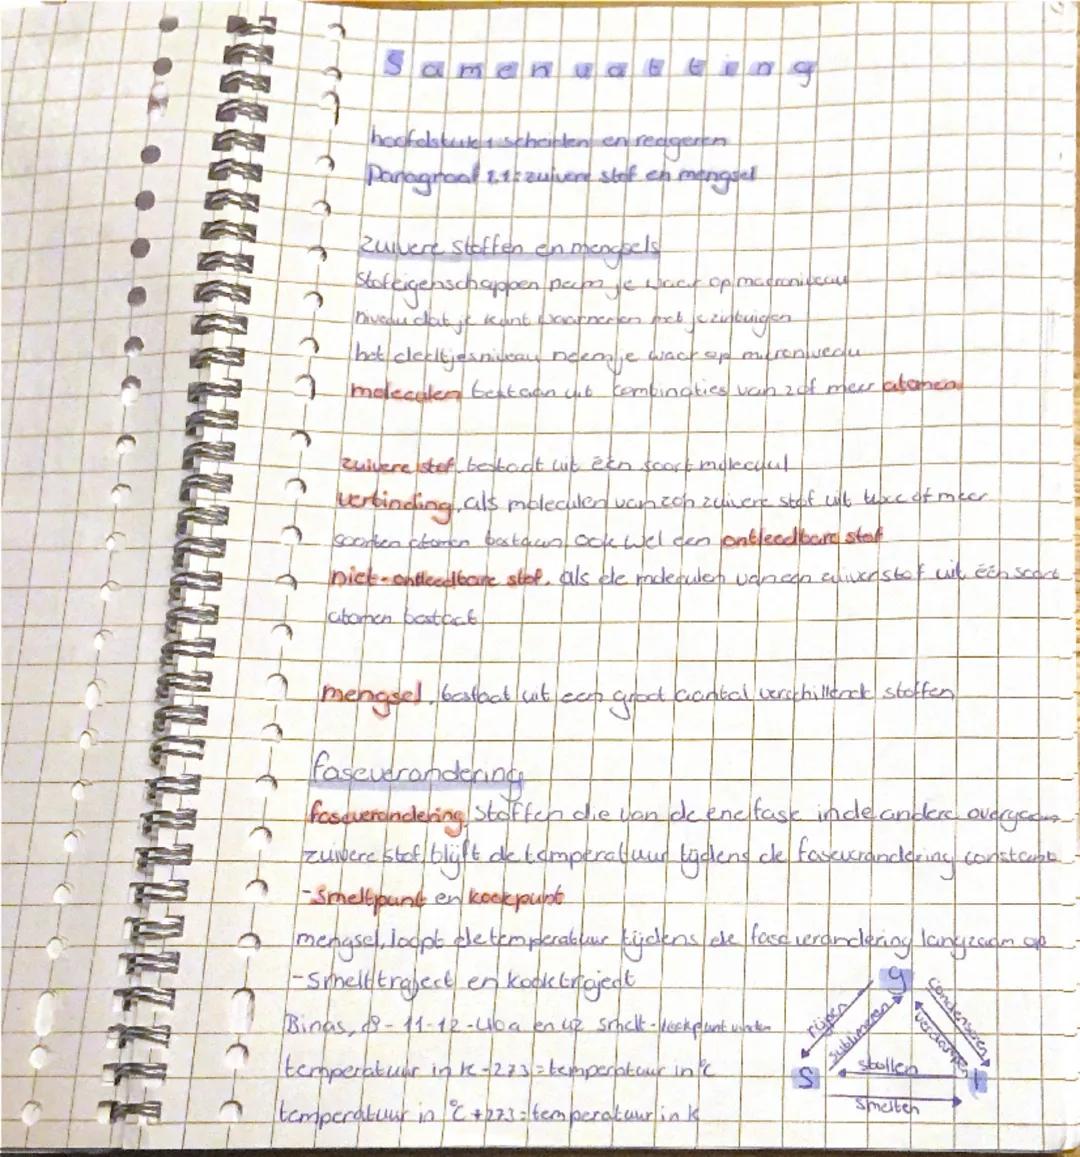 Samenvatting
hoofdstuk 1 scheiden en reageren
Paragraaf 1.1: zuivere stof en mengsel
Zuivere stoffen en mengsels
Stofeigenschappen neem je waar op macroniveau
niveau dat je kunt waarnemen met je zintuigen
het deeltjesniveau neem je waar op microniveau
moleculen bestaan uit combinaties van 2 of meer atomen
zuivere stof, bestaat uit één soort molecuul
verbinding, als moleculen van zo'n zuivere stof uit twee of meer
soorten atomen bestaan, ook wel een ontleedbare stof
niet-ontleedbare stof, als de moleculen van een zuiver stof uit één soort
atomen bestaat
mengsel, bestaat uit een groot aantal verschillende stoffen
faseverandering
faseverandering, stoffen die van de ene fase in de andere overgaan
zuivere stof, blijft de temperatuur tijdens de faseverandering constant
-Smeltpunt en kookpunt
mengsel, loopt de temperatuur tijdens de faseverandering langzaam op
-Smelttraject en kooktraject
Binas, 8 - 11-12-40a en 42 smelt-kookpunt vinden
temperatuur in K -273 = temperatuur in °C
temperatuur in °C +273 = temperatuur in K
g
rijpen
sublimeren
condenseren
verdampen
s
stollen
l
smelten